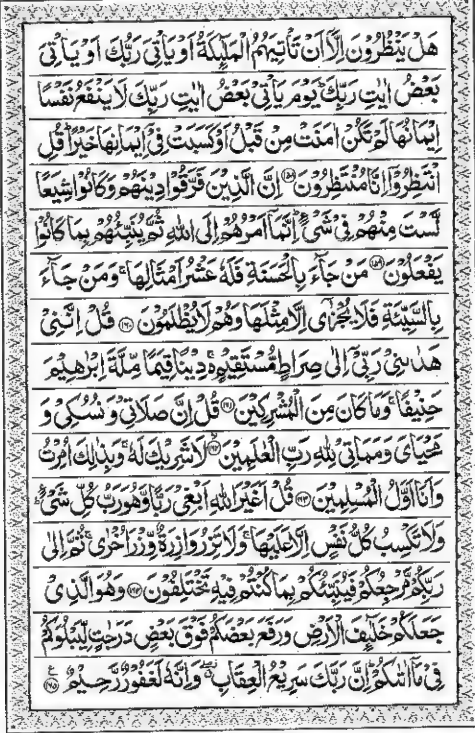 هَلْ يَنْظُرُوْنَ اِلَّاۤ اَنْ تَاْتِيَهُمُ الْمَلٰٓئِكَةُ اَوْ يَاْتِيَ رَبُّكَ اَوْ يَاْتِيَ
بَعْضُ اٰيٰتِ رَبِّكَ ؕ يَوْمَ يَاْتِيْ بَعْضُ اٰيٰتِ رَبِّكَ لَا يَنْفَعُ نَفْسًا
اِيْمَانُهَا لَمْ تَكُنْ اٰمَنَتْ مِنْ قَبْلُ اَوْ كَسَبَتْ فِيْۤ اِيْمَانِهَا خَيْرًا ؕ قُلِ
انْتَظِرُوْۤا اِنَّا مُنْتَظِرُوْنَ ﴿۱۵۸﴾ اِنَّ الَّذِيْنَ فَرَّقُوْا دِيْنَهُمْ وَكَانُوْا شِيَعًا
لَّسْتَ مِنْهُمْ فِيْ شَيْءٍ ؕ اِنَّمَاۤ اَمْرُهُمْ اِلَى اللّٰهِ ثُمَّ يُنَبِّئُهُمْ بِمَا كَانُوْا
يَفْعَلُوْنَ ﴿۱۵۹﴾ مَنْ جَآءَ بِالْحَسَنَةِ فَلَهٗ عَشْرُ اَمْثَالِهَا ۚ وَمَنْ جَآءَ
بِالسَّيِّئَةِ فَلَا يُجْزٰۤى اِلَّا مِثْلَهَا وَهُمْ لَا يُظْلَمُوْنَ ﴿۱۶۰﴾ قُلْ اِنَّنِيْ
هَدٰىنِيْ رَبِّيْۤ اِلٰى صِرَاطٍ مُّسْتَقِيْمٍ ۚ دِيْنًا قِيَمًا مِّلَّةَ اِبْرٰهِيْمَ
حَنِيْفًا ۚ وَمَا كَانَ مِنَ الْمُشْرِكِيْنَ ﴿۱۶۱﴾ قُلْ اِنَّ صَلَاتِيْ وَنُسُكِيْ وَ
مَحْيَايَ وَمَمَاتِيْ لِلّٰهِ رَبِّ الْعٰلَمِيْنَ ﴿۱۶۲﴾ لَا شَرِيْكَ لَهٗ ۚ وَبِذٰلِكَ اُمِرْتُ
وَاَنَا اَوَّلُ الْمُسْلِمِيْنَ ﴿۱۶۳﴾ قُلْ اَغَيْرَ اللّٰهِ اَبْغِيْ رَبًّا وَّهُوَ رَبُّ كُلِّ شَيْءٍ ؕ
وَلَا تَكْسِبُ كُلُّ نَفْسٍ اِلَّا عَلَيْهَا ۚ وَلَا تَزِرُ وَازِرَةٌ وِّزْرَ اُخْرٰى ۚ ثُمَّ اِلٰى
رَبِّكُمْ مَّرْجِعُكُمْ فَيُنَبِّئُكُمْ بِمَا كُنْتُمْ فِيْهِ تَخْتَلِفُوْنَ ﴿۱۶۴﴾ وَهُوَ الَّذِيْ
جَعَلَكُمْ خَلٰٓئِفَ الْاَرْضِ وَرَفَعَ بَعْضَكُمْ فَوْقَ بَعْضٍ دَرَجٰتٍ لِّيَبْلُوَكُمْ
فِيْ مَاۤ اٰتٰىكُمْ ؕ اِنَّ رَبَّكَ سَرِيْعُ الْعِقَابِ ۖ وَاِنَّهٗ لَغَفُوْرٌ رَّحِيْمٌ ﴿۱۶۵﴾ ع